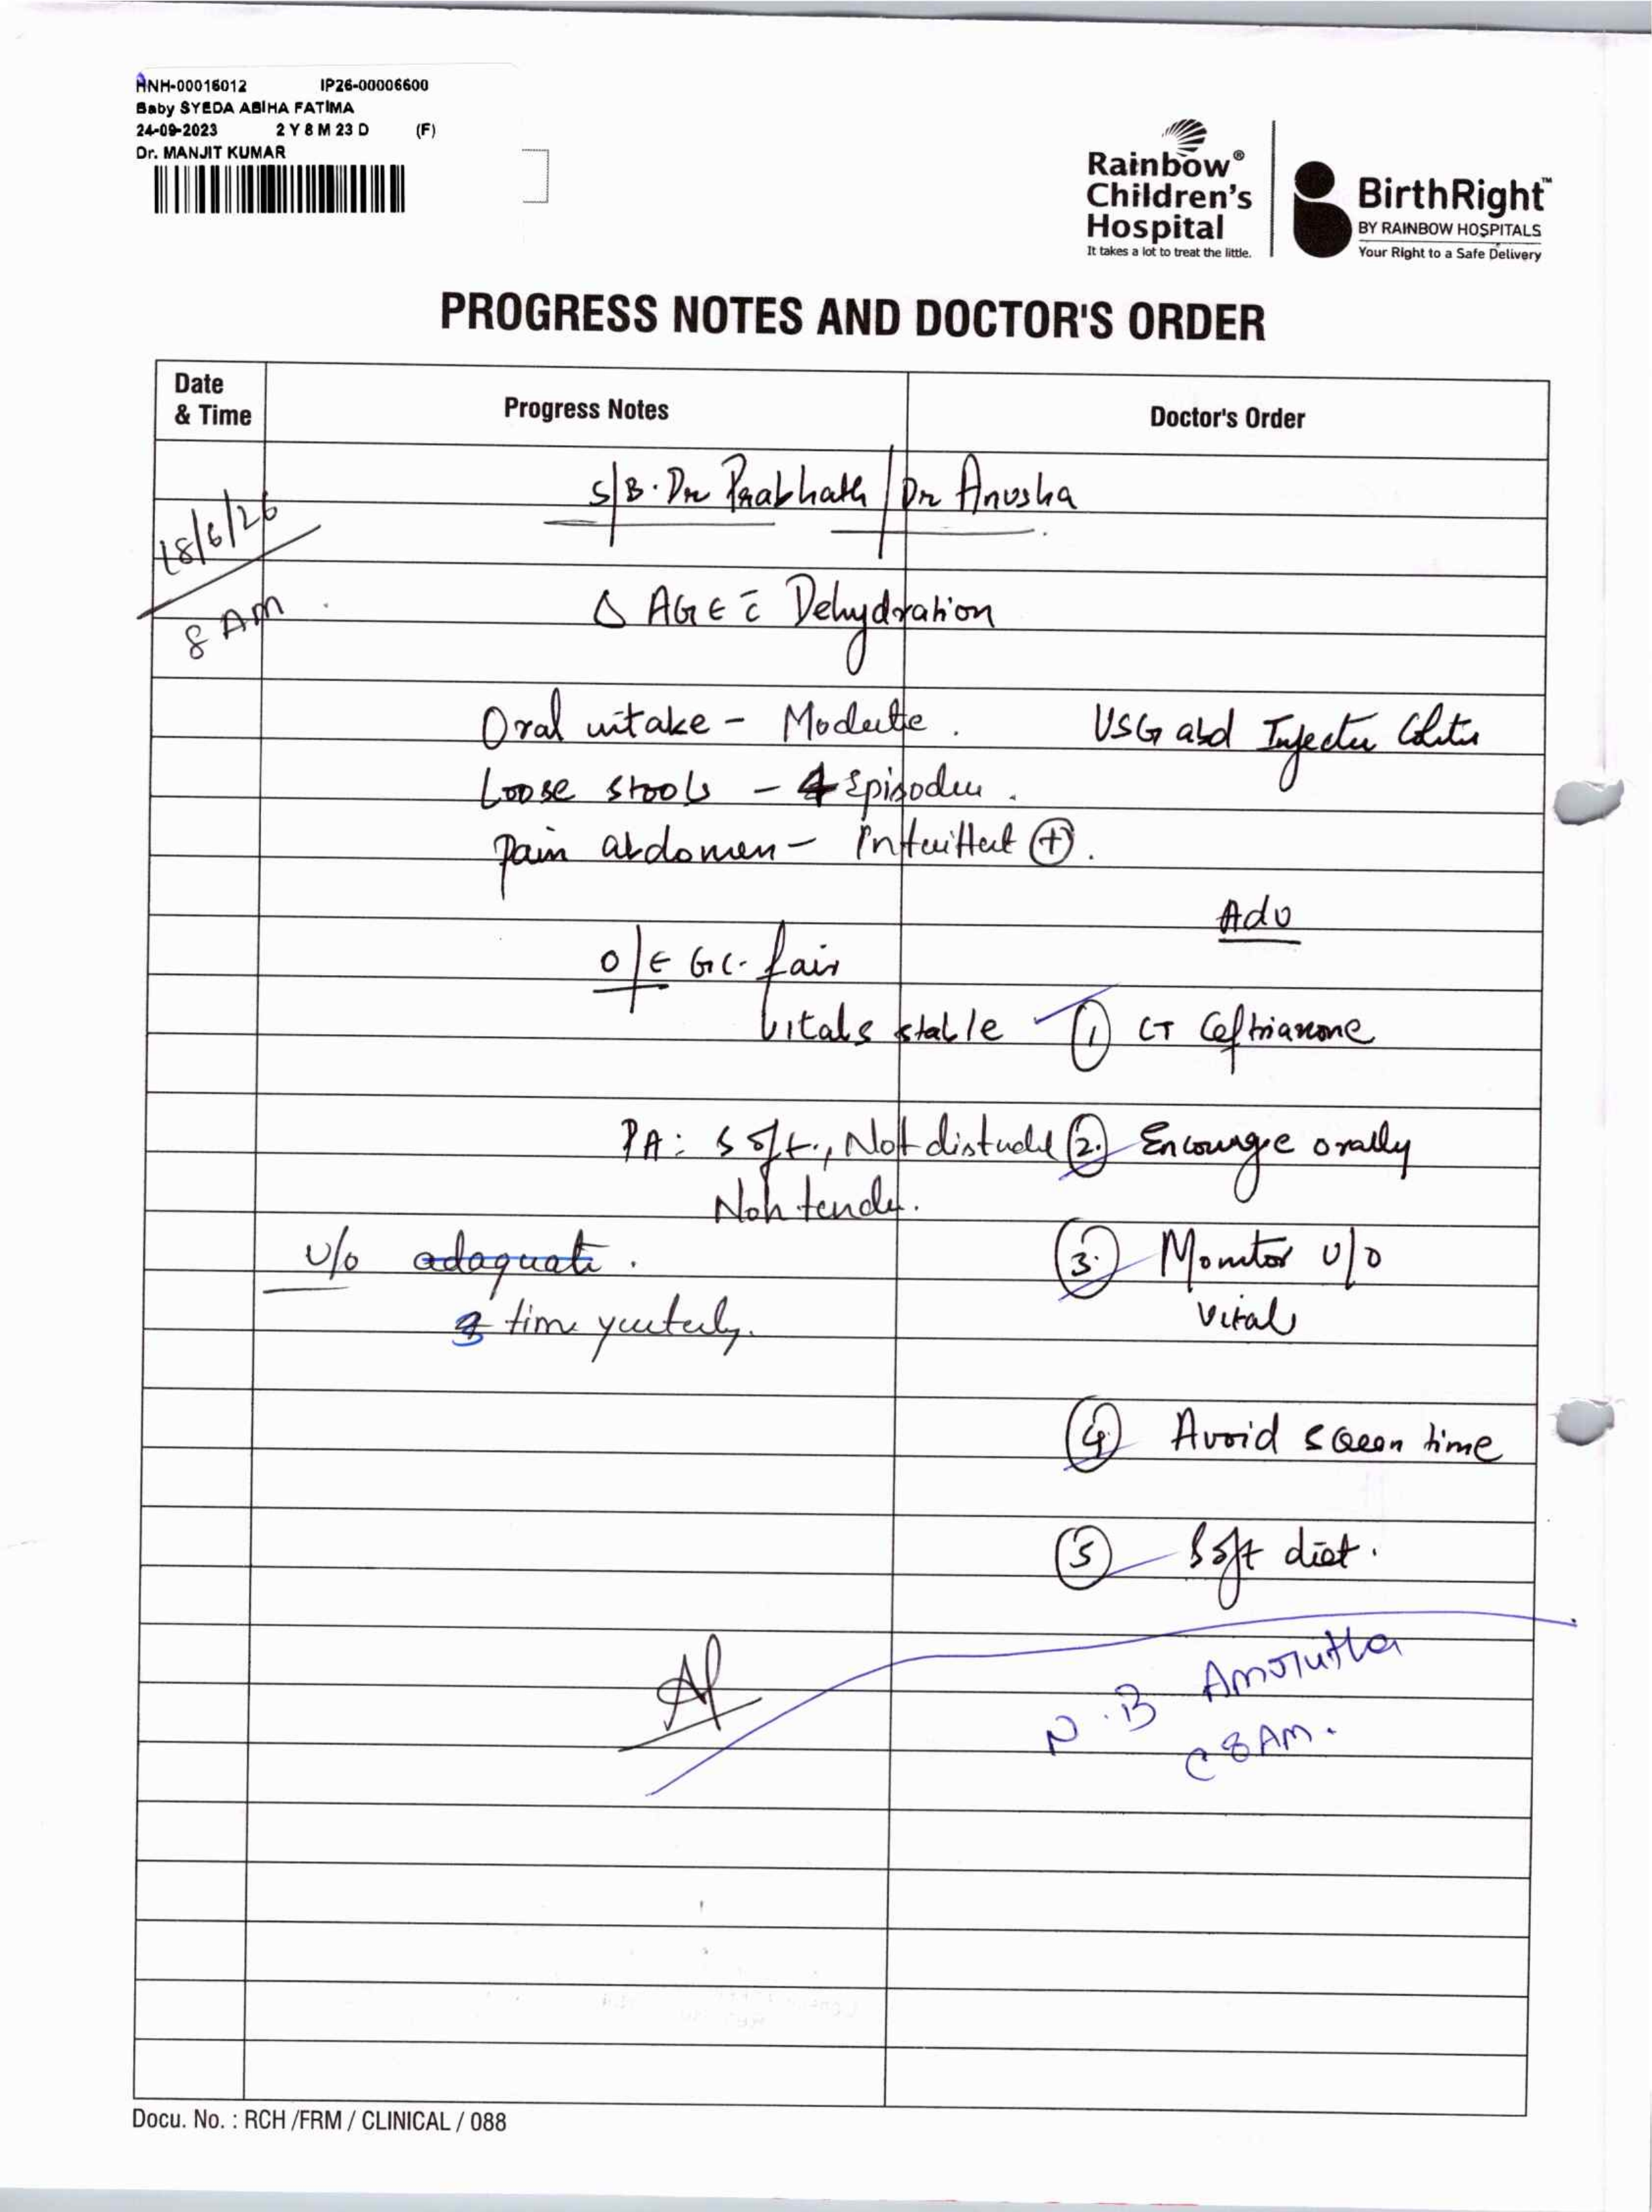 HNH-00016012 IP26-00006600
Baby SYEDA ABIHA FATIMA
24-09-2023 2 Y 8 M 23 D (F)
Dr. MANJIT KUMAR
Rainbow®
Children's
Hospital
It takes a lot to treat the little.
BirthRight™
BY RAINBOW HOSPITALS
Your Right to a Safe Delivery
PROGRESS NOTES AND DOCTOR'S ORDER
Date
& Time
Progress Notes
Doctor's Order
S/B. Dr Prabhath / Dr Anusha
18/6/26
8 AM
Δ AGE c̄ Dehydration
Oral intake - Moderate.
USG abd Infective Colitis
Loose stools - 4 Episodes.
Pain abdomen - Intermittent (+).
Adv
O/E GC. fair
Vitals stable
1) CT Ceftriaxone
PA: Soft, Not distended
Non tender.
2. Encourage orally
U/o adaquate.
3 time yesterday.
3. Monitor U/o
Vitals
4. Avoid screen time
5 Soft diet.
N.B Amrutha
@ 8AM.
Docu. No. : RCH /FRM / CLINICAL / 088